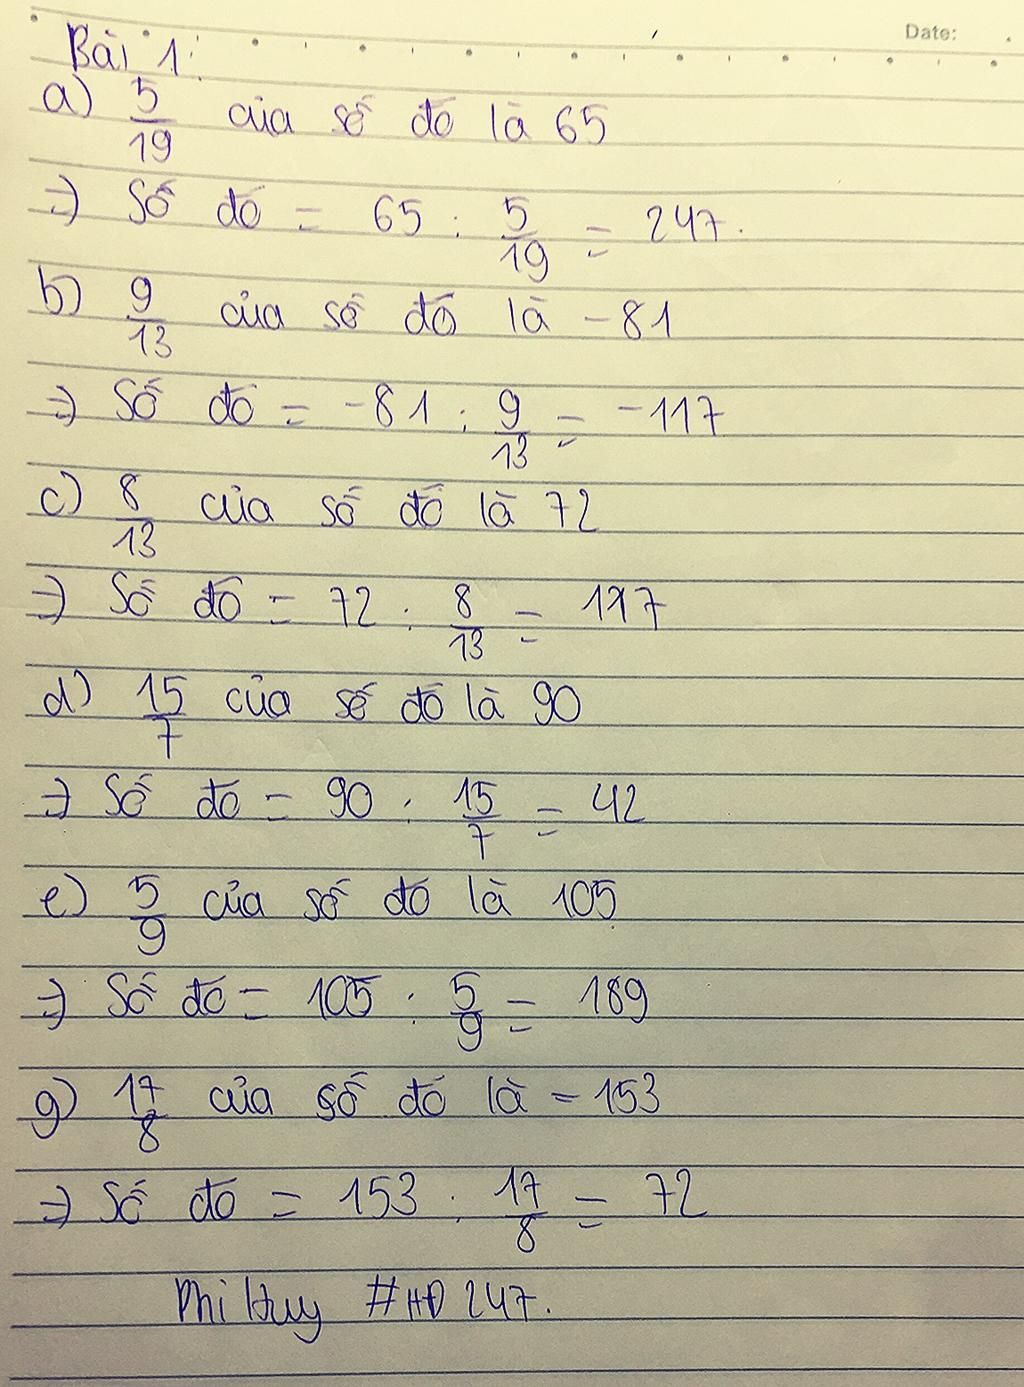 Date:
Bài 1:
a) 5/19 của số đó là 65
=> Số đó = 65 : 5/19 = 247.
b) 9/13 của số đó là -81
=> Số đó = -81 : 9/13 = -117
c) 8/13 của số đó là 72
=> Số đó = 72 : 8/13 = 117
d) 15/7 của số đó là 90
=> Số đó = 90 : 15/7 = 42
e) 5/9 của số đó là 105
=> Số đó = 105 : 5/9 = 189
g) 17/8 của số đó là -153
=> Số đó = 153 : 17/8 = 72
Phi Huy #HĐ 247.